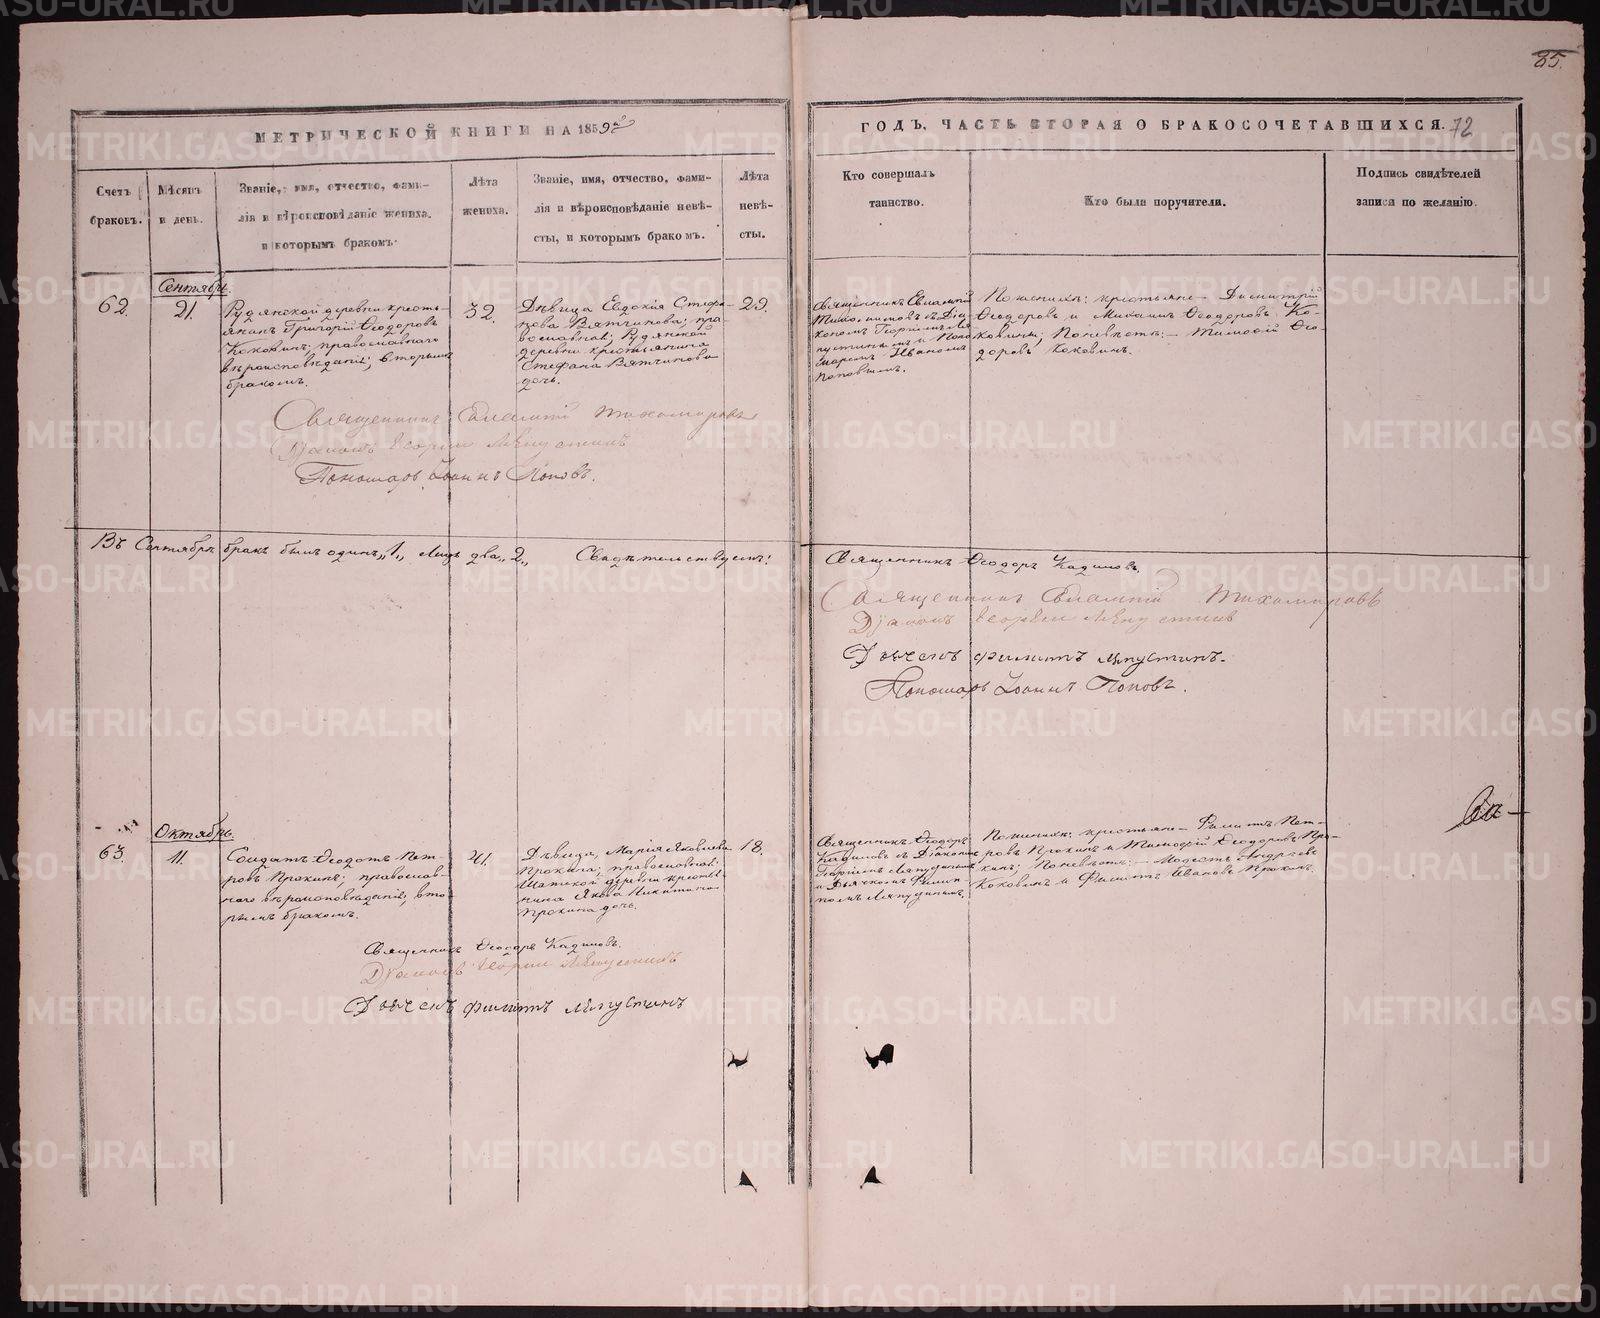 85.
МЕТРИЧЕСКОЙ КНИГИ НА 1859й
ГОДЪ, ЧАСТЬ ВТОРАЯ О БРАКОСОЧЕТАВШИХСЯ. 72
Счетъ
браковъ.
Мѣсяцъ
и день.
Званіе, имя, отчество, фами-
лія и вѣроисповѣданіе жениха.
и которымъ бракомъ.
Лѣта
жениха.
Званіе, имя, отчество, фами-
лія и вѣроисповѣданіе невѣ-
сты, и которымъ бракомъ.
Лѣта
невѣ-
сты.
Кто совершалъ
таинство.
Кто были поручители.
Подпись свидѣтелей
записи по желанію.
Сентябрь.
62.
21.
Рудянской деревни кресть-
янинъ Григорій Ѳеодоровъ
Коковинъ; православнаго
вѣроисповѣданія; вторымъ
бракомъ.
32.
Дѣвица Евдокія Стефа-
нова Вятчинова; пра-
вославная; Рудянской
деревни крестьянина
Стефана Вятчинова
дочь.
29.
Священникъ Евлампій
Тихомировъ съ Діа-
кономъ Георгіемъ Ля-
пустинымъ и Поно-
маремъ Иваномъ
Поповымъ.
По женихѣ: крестьяне – Димитрій
Ѳеодоровъ и Михаилъ Ѳеодоровъ Ко-
ковины; По невѣстѣ: – Тимофей Ѳео-
доровъ Коковинъ.
Священникъ Евлампій Тихомировъ
Діаконъ Георгій Ляпустинъ
Пономарь Іоаннъ Поповъ.
Въ Сентябрѣ бракъ былъ одинъ „1„ Лицъ два „2„ Свидѣтельствуемъ:
Священникъ Ѳеодоръ Кадимовъ.
Священникъ Евлампій Тихомировъ
Діаконъ Георгій Ляпустинъ
Дьячекъ Филиппъ Ляпустинъ.
Пономарь Іоаннъ Поповъ.
Октябрь.
63.
11.
Солдатъ Ѳеодотъ Пет-
ровъ Прокинъ; православ-
наго вѣроисповѣданія; вто-
рымъ бракомъ.
41.
Дѣвица, Марія Яковлева
Прокина; православная;
деревни крестья-
нина Якова Никитина
Прокина дочь.
18.
Священникъ Ѳеодоръ
Кадимовъ съ Діакономъ
Георгіемъ Ляпустинымъ
и Дьячкомъ Филип-
помъ Ляпустинымъ.
По женихѣ: крестьяне – Филиппъ Пет-
ровъ Прокинъ и Тимофей Ѳеодоровъ Про-
кинъ; По невѣстѣ: – Модестъ Андреевъ
Коковинъ и Филиппъ Ивановъ Прокинъ.
Священникъ Ѳеодоръ Кадимовъ.
Діаконъ Георгій Ляпустинъ
Дьячекъ Филиппъ Ляпустинъ
METRIKI.GASO-URAL.RU